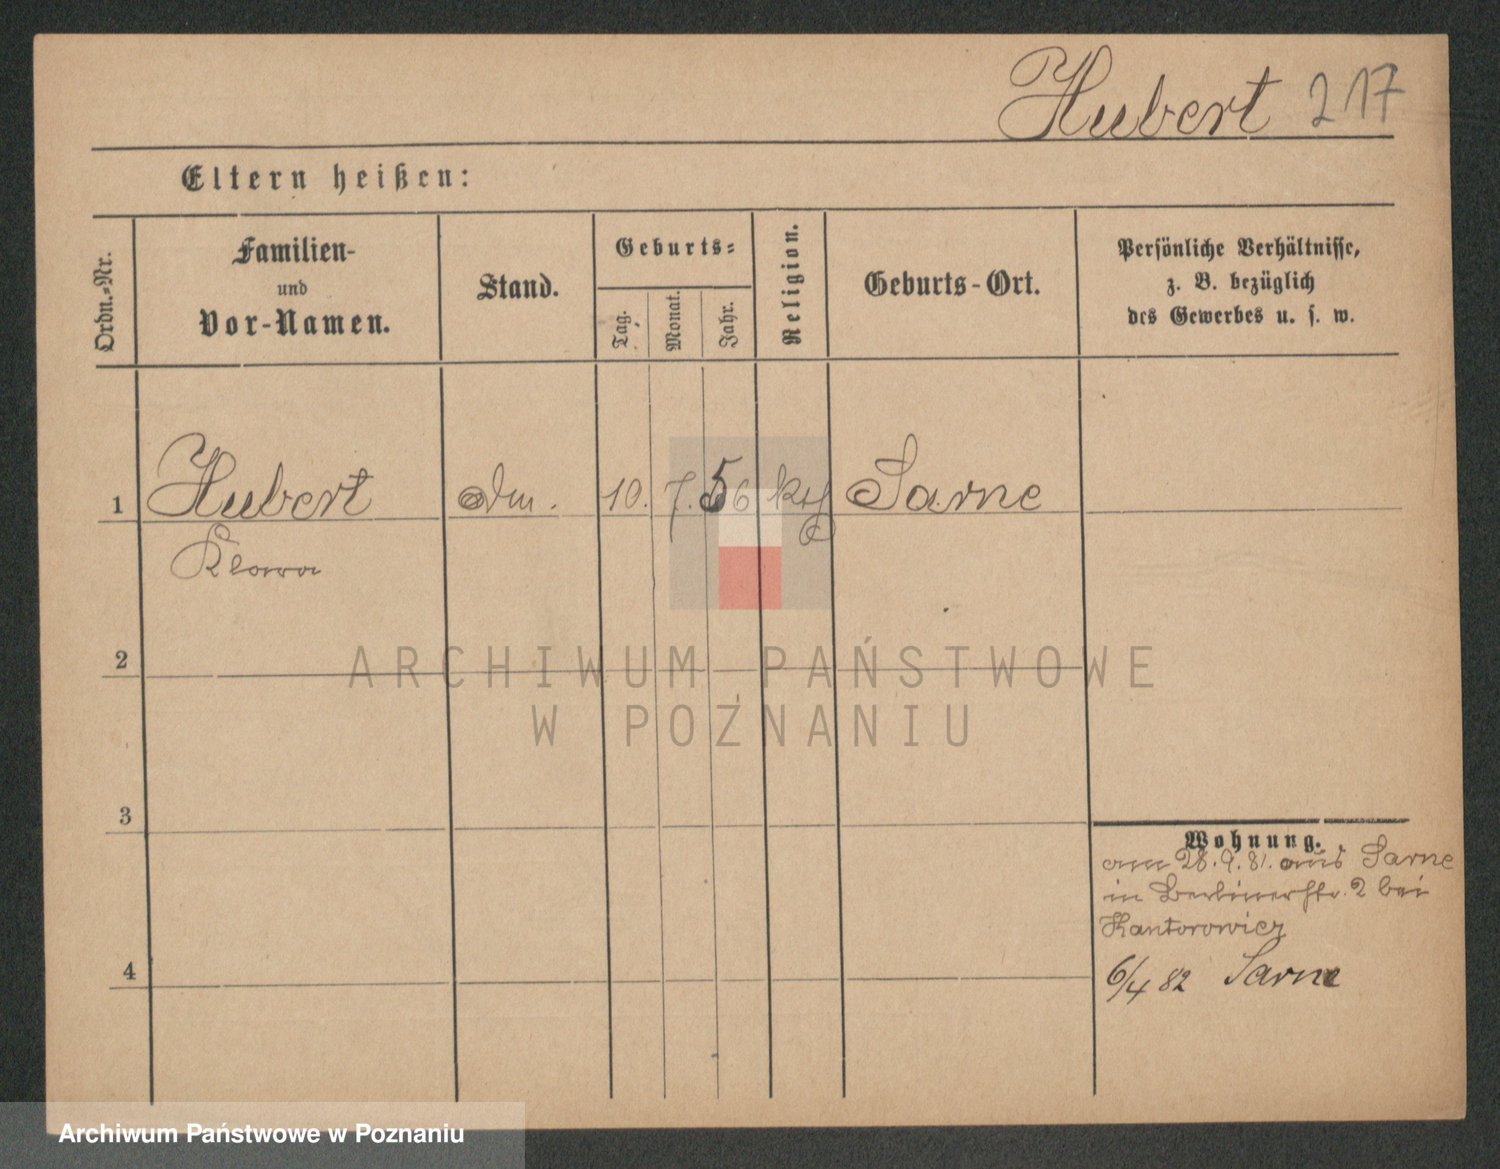 Hubert 217
Eltern heißen:
Ordn.-Nr.
Familien-
und
Vor-Namen.
Stand.
Geburts-
Tag.
Monat.
Jahr.
Religion.
Geburts-Ort.
Persönliche Verhältnisse,
z. B. bezüglich
des Gewerbes u. s. w.
1 Hubert 10. 7. 56 Sarne
Klara
2
ARCHIWUM PAŃSTWOWE
W POZNANIU
3
Wohnung.
am 28.9.81. aus Sarne
in Berlinerstr. 2 bei
Kantorowicz
4
6/4 82 Sarne
Archiwum Państwowe w Poznaniu